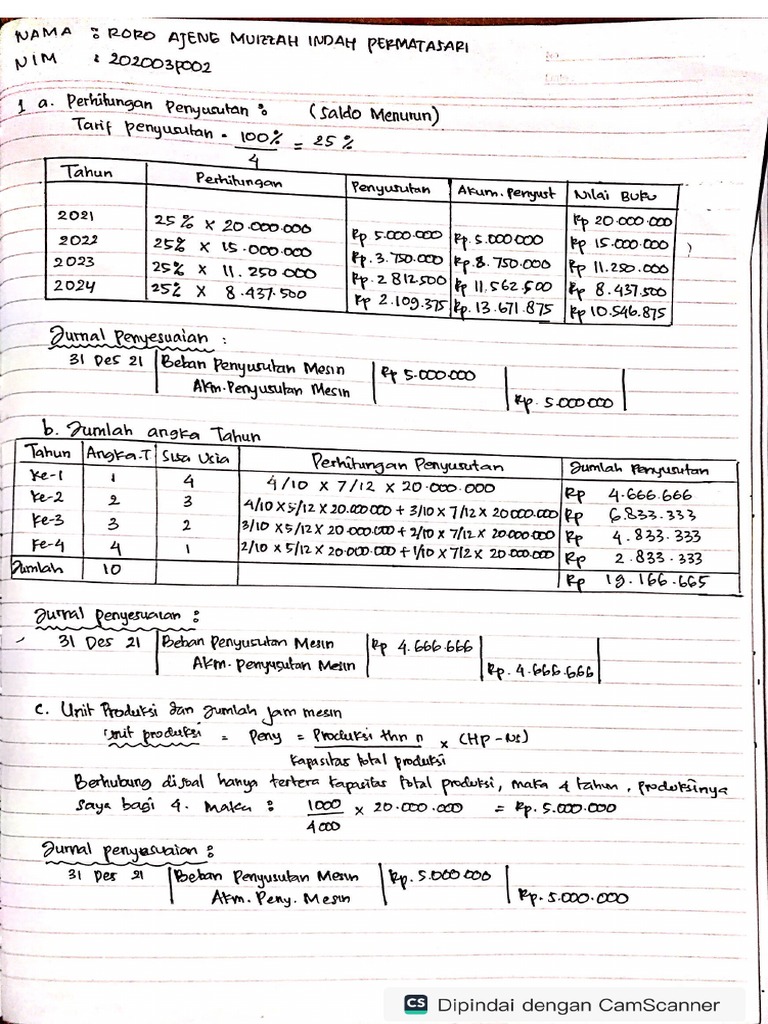 NAMA : RORO AJENG MUIZZAH INDAH PERMATASARI
NIM : 202003P002
1 a. Perhitungan Penyusutan : (Saldo Menurun)
Tarif penyusutan = 100% / 4 = 25 %
Tahun Perhitungan Penyusutan Akum. Penyust Nilai Buku
Rp 20.000.000
2021 25 % x 20.000.000 Rp 5.000.000 Rp. 5.000.000 Rp 15.000.000
2022 25% x 15.000.000 Rp. 3.750.000 Rp. 8.750.000 Rp 11.250.000
2023 25% x 11.250.000 Rp. 2 812.500 Rp 11.562.500 Rp 8.437.500
2024 25% x 8.437.500 Rp 2.109.375 Rp. 13.671.875 Rp 10.546.875
Jurnal Penyesuaian :
31 Des 21 Beban Penyusutan Mesin Rp 5.000.000
Akm. Penyusutan Mesin Rp. 5.000.000
b. Jumlah angka Tahun
Tahun Angka.T Sisa Usia Perhitungan Penyusutan Jumlah Penyusutan
Ke-1 1 4 4/10 x 7/12 x 20.000.000 Rp 4.666.666
Ke-2 2 3 4/10 x 5/12 x 20.000.000 + 3/10 x 7/12 x 20.000.000 Rp 6.833.333
Ke-3 3 2 3/10 x 5/12 x 20.000.000 + 2/10 x 7/12 x 20.000.000 Rp 4.833.333
Ke-4 4 1 2/10 x 5/12 x 20.000.000 + 1/10 x 7/12 x 20.000.000 Rp 2.833.333
Jumlah 10 Rp 19.166.665
Jurnal penyesuaian :
31 Des 21 Beban Penyusutan Mesin Rp 4.666.666
Akm. penyusutan Mesin Rp. 4.666.666
c. Unit Produksi dan Jumlah jam mesin
Unit produksi = Peny = Produksi thn n / Kapasitas total produksi x (HP - NS)
Berhubung disoal hanya tertera kapasitas total produksi, maka 4 tahun, produksinya
saya bagi 4. Maka : 1000 / 4000 x 20.000.000 = Rp. 5.000.000
Jurnal penyesuaian :
31 Des 21 Beban Penyusutan Mesin Rp. 5.000.000
Akm. Peny. Mesin Rp. 5.000.000
CS Dipindai dengan CamScanner